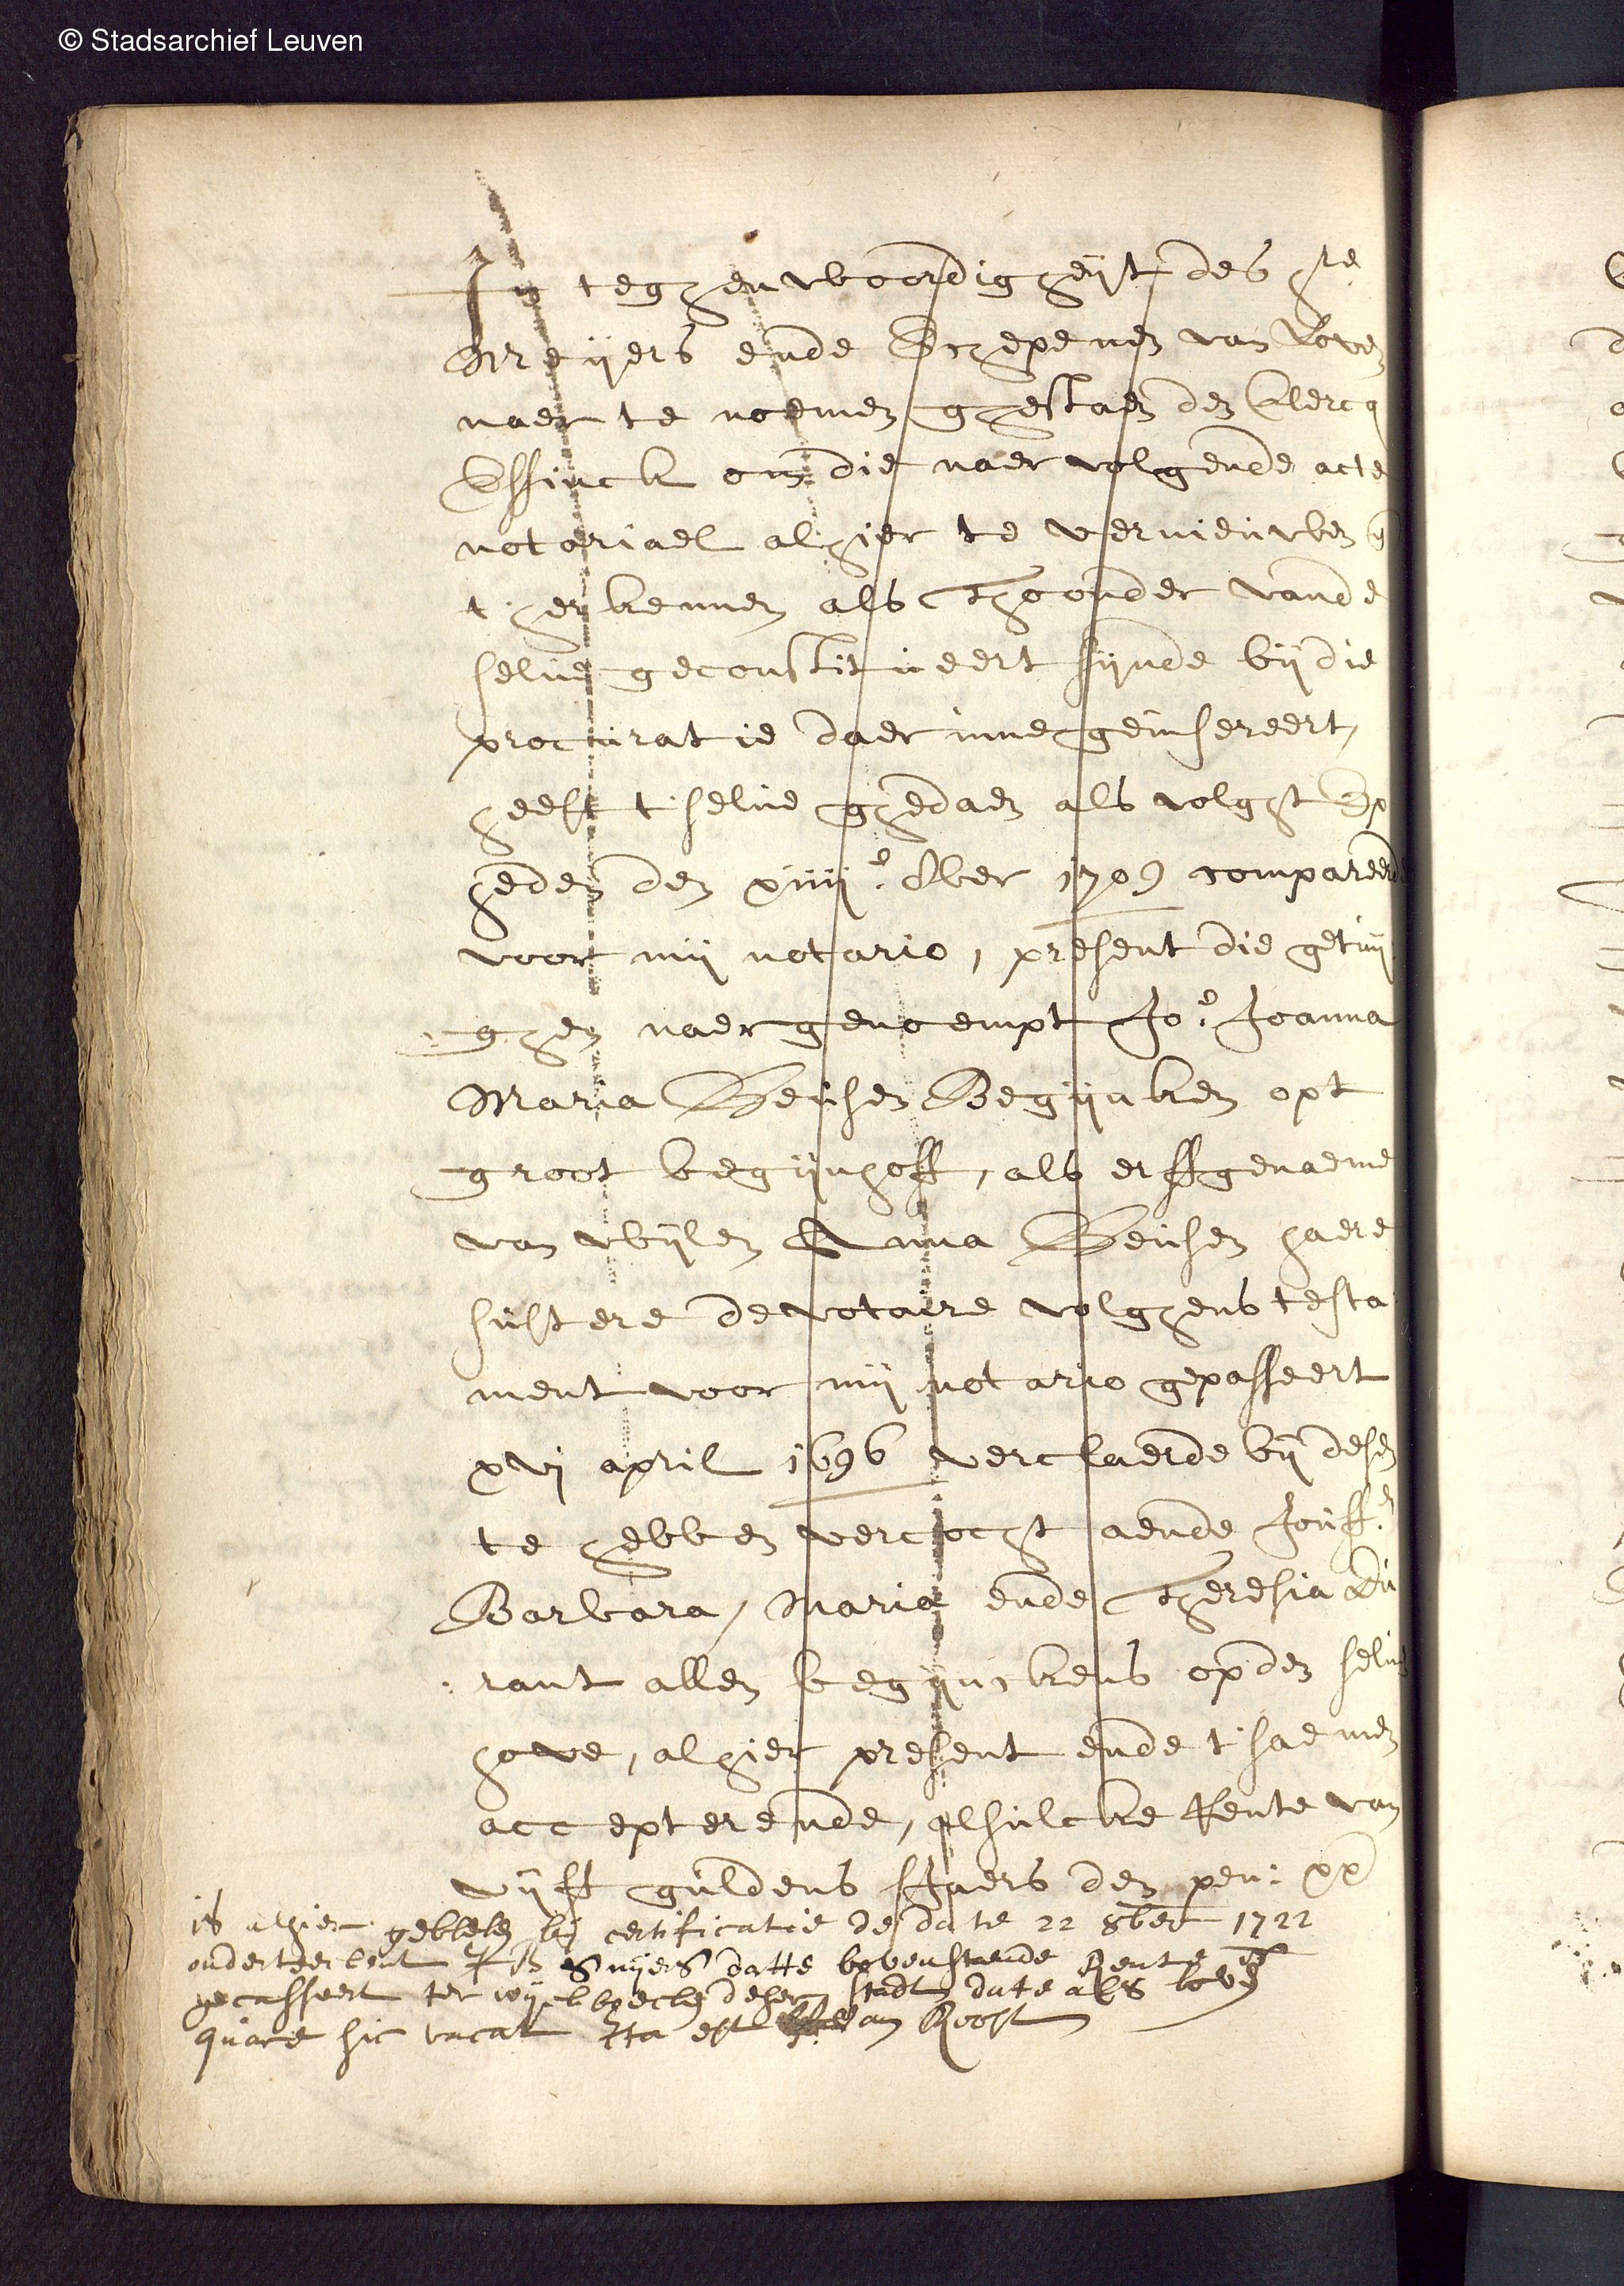 © Stadsarchief Leuven
In teghenwoordigheijt des hre
Meijers ende Schepenen van Loven
naer te noemen ghestaen den Clercq
Essinck om die naervolgende acte
notariael alhier te vernieuwen
t'herkennen als Thoonder vande
selve geconstitueert sijnde bij die
procuratie daer inne geinsereert,
heeft t'selve ghedaen als volght Op
heden den xiiije. 8ber 1709 compareerde
voor mij notario, present die getuij
ghen naergenoempt Joe. Joanna
Maria Beijsen Begijnken opt
groot begijnhoff, als erffgenaeme
van wijlen Anna Beijsen haere
suster devotaire volghens testa
ment voor mij notario gepasseert
xvj april 1696 verclaerde bij desen
te hebben vercocht aende Jouffe.
Barbara, Maria ende Theresia Du
rant allen begijnckens op den selven
hove, alhier present ende t'saemen
accepterende, alsulcke Rente van
vijff guldens sjaers den pen: xx
is alhier gebleken bij certificatie de date 22 8ber 1722
onderteekent Snijers datte bovenstaende Rente is
gecasseert ter wijckboecken deser stadt date als boven
quare hic vacat Ita est van Roost